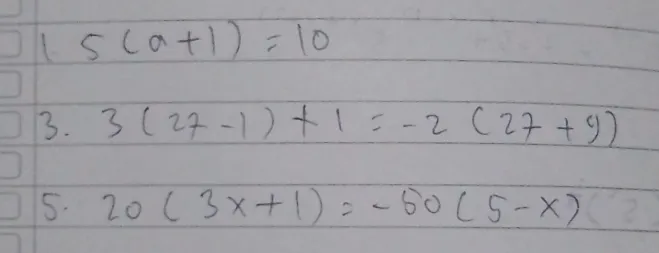 1 5(a+1)=10
3. 3(27-1)+1=-2(27+9)
5. 20(3x+1)=-50(5-x)